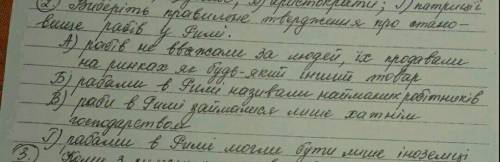 аристократи; Г) патриції
2) Виберіть правильне твердження про стано-
вище рабів у Римі.
А) рабів не вважали за людей, їх продавали
на ринках як будь-який інший товар
Б) рабами в Римі називали найманих робітників
В) раби в Римі займалися лише хатнім
господарством
Г) рабами в Римі могли бути лише іноземці
3) Коли з